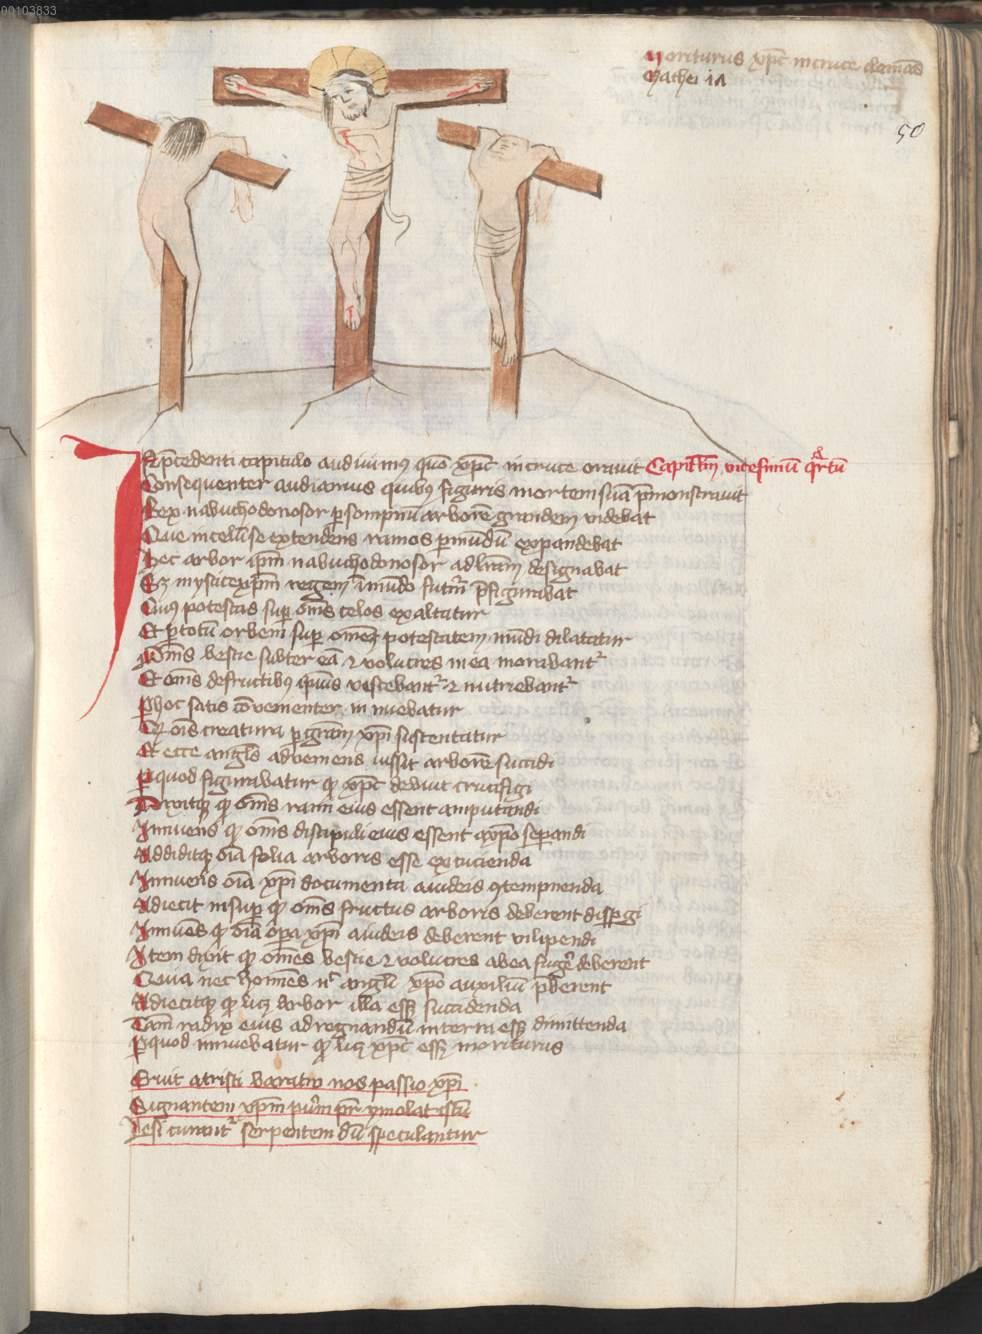 00103833
Moriturus xp̄c in cruce clamās
Mathei
50
In p̄cedenti capitulo audiuimus quō xp̄c in cruce orauit Capitl̄m vicesimū qrtū
Consequenter audiamus quibus figuris mortem suā p̄monstrauit
Rex nabuchodonosor p sompnū arborē grandem videbat
Que in celū se extendens ramos p mūdū expandebat
Hec arbor ipm̄ nabuchodonosor ad lr̄am designabat
Et mystice xp̄m regem ī mūdo futur̄ p̄figurabat
Cuius potestas sup om̄s celos exaltatur
Et p totū orbem sup omēm potestatem mūdi dilatatur
Om̄s bestie subter eā et volucres in ea morabant~
Et om̄s de fructibus ipius vescebant~ et nutriebant~
Per hoc satis cōvenienter innuebatur
Quod ōis creatura p grām xp̄i sustentatur
Et ecce angl̄s adveniens iussit arborē succidi
Per quod figurabatur quod xp̄c debuit crucifigi
Dixitque quod om̄s rami eius essent amputandi
Innuens quod om̄s discipuli eius essent a xp̄o sepandi
Addiditque oīa folia arboris esse excucienda
Innuens oīa xp̄i documenta a iudeis contempnenda
Adiecit insup quod om̄s fructus arboris deberent dispgi
Innuēs quod oīa opa xp̄i a iudeis deberent vilipendi
Item dixit quod omēs bestie et volucres ab ea fugē deberent
Quia nec homīes nec angl̄i xp̄o auxiliū p̄berent
Adiecitque quod licet arbor illa esset succidenda
Tam̄ radix eius ad regnandū in terra esset dimittenda
Per quod innuebatur quod licet xp̄c esset moriturus
Eruit a tristi baratro nos passio xp̄i
Signantem xp̄m puerm̄ pr̄ ymolat istū
Lesi curant~ serpentem dū speculantur